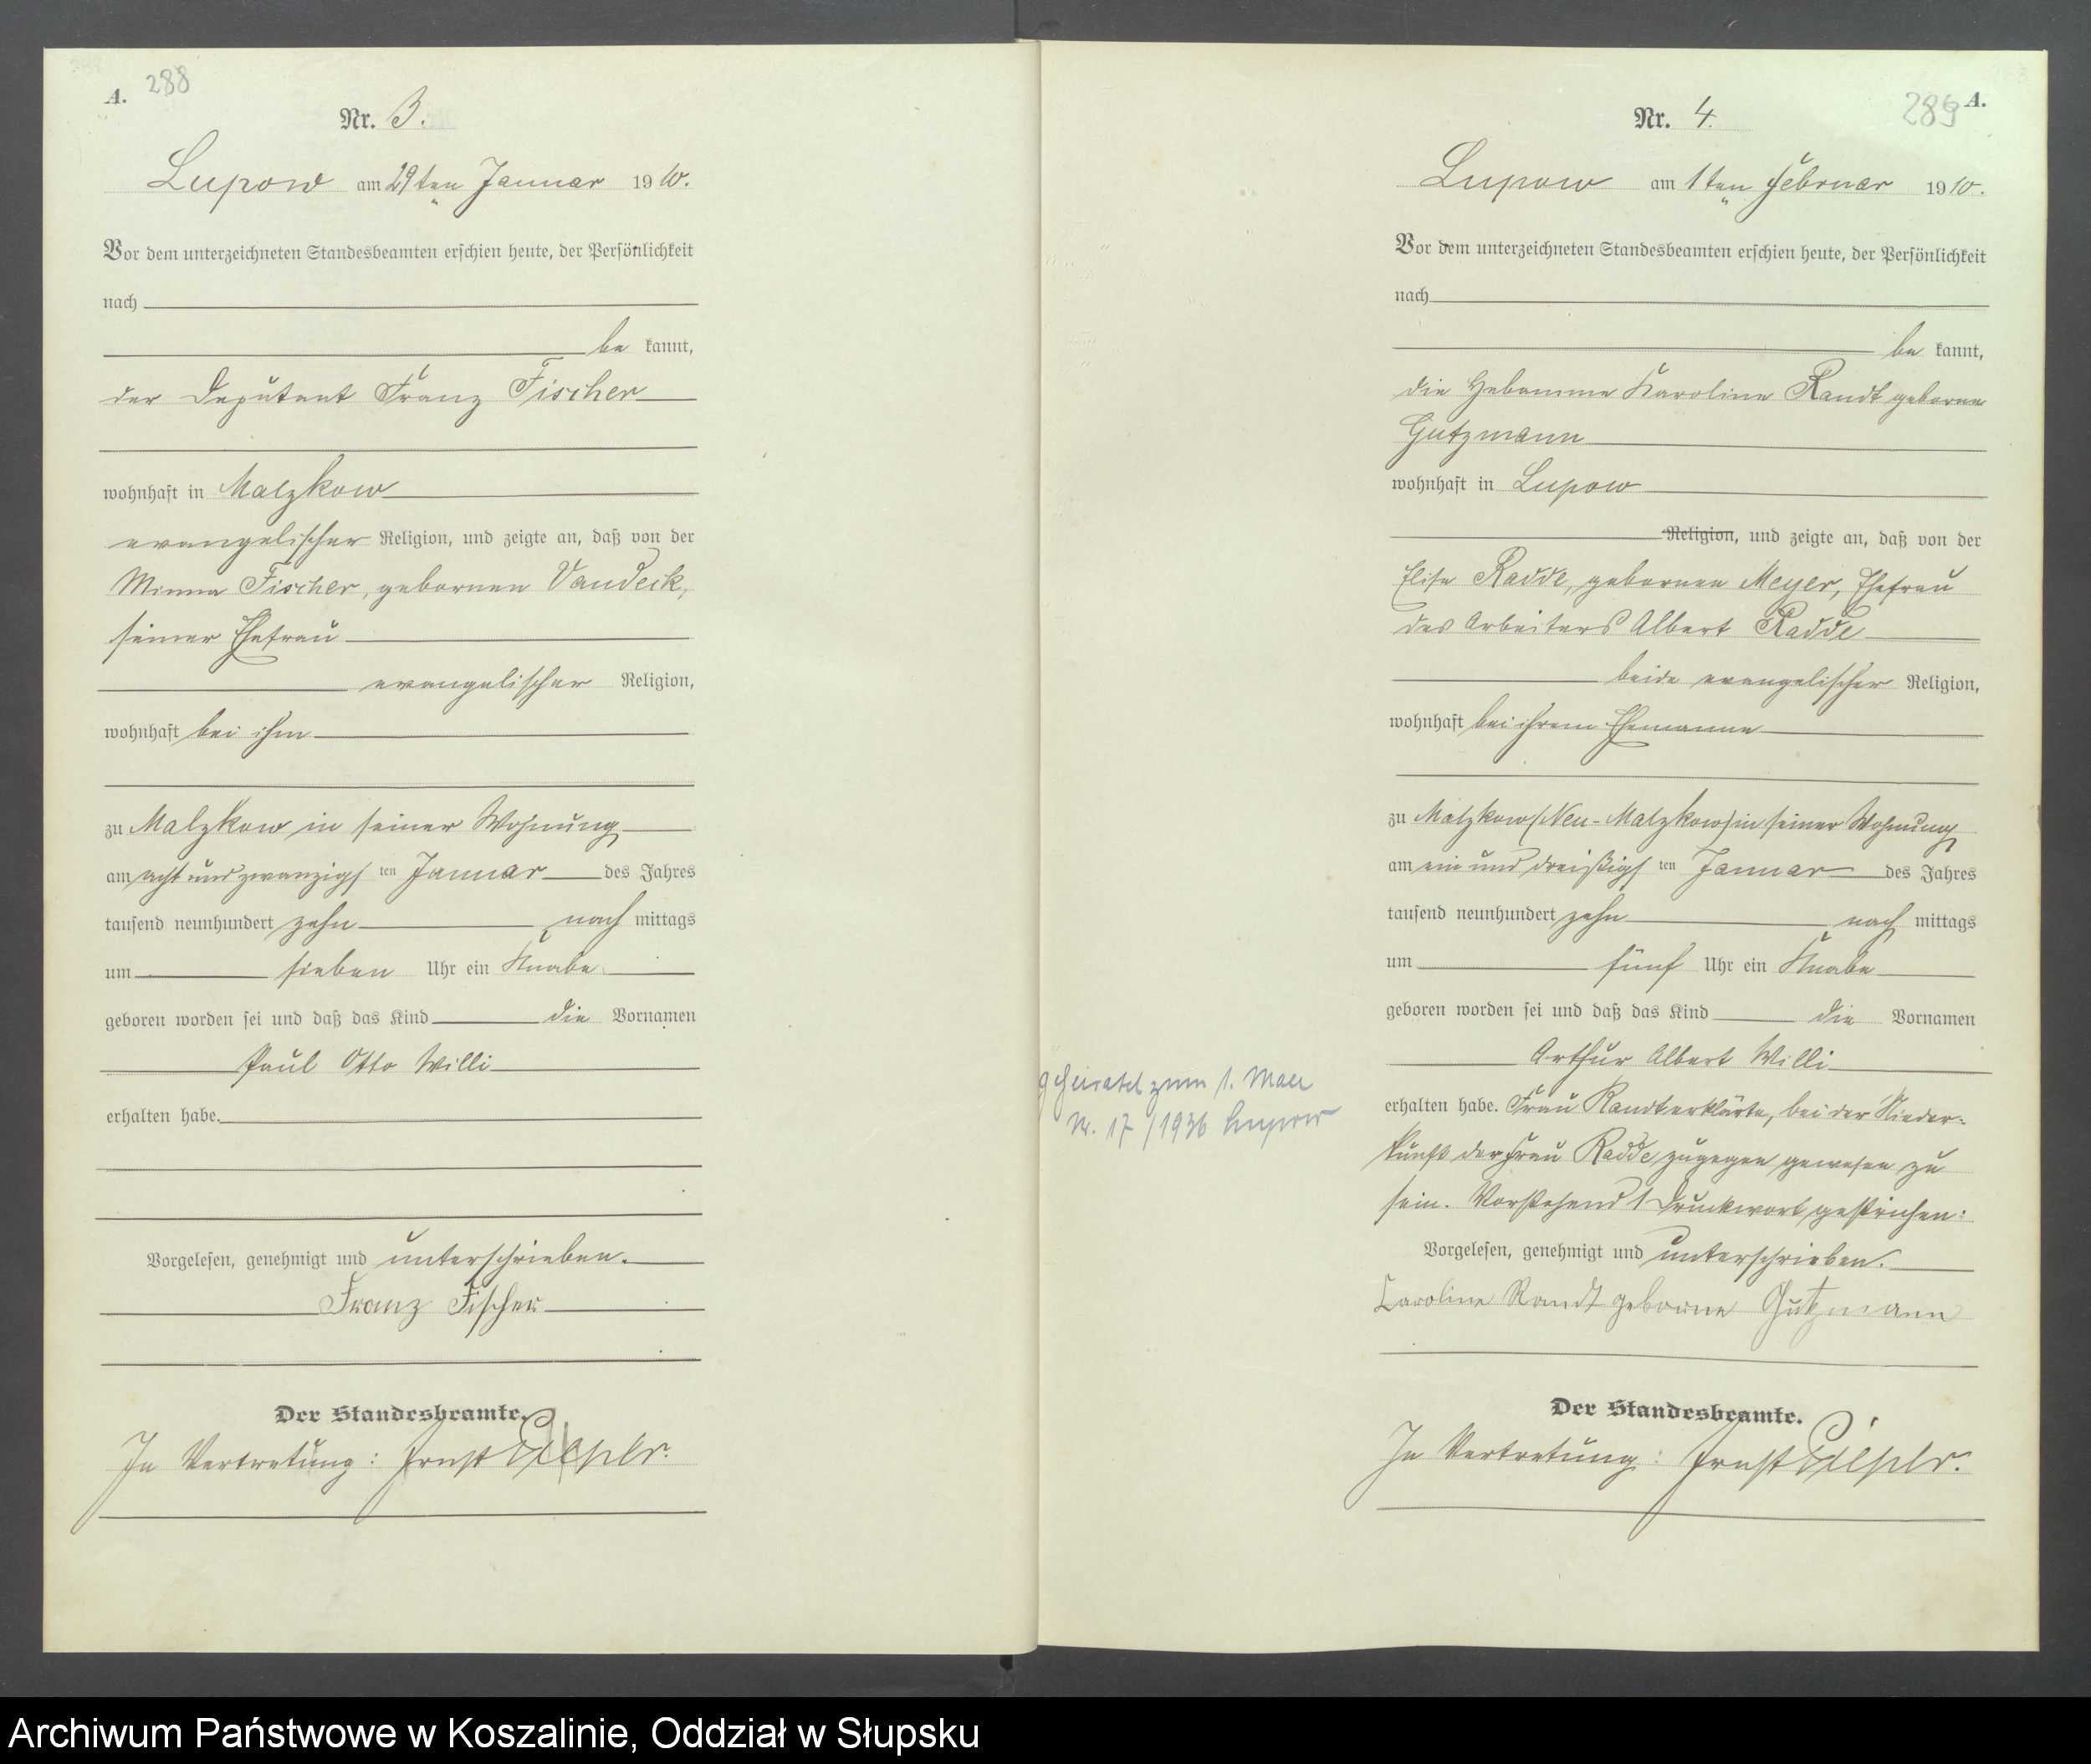 A. 288
Nr. 3.
Lupow am 29ten Januar 1910.
Vor dem unterzeichneten Standesbeamten erschien heute, der Persönlichkeit
nach
be kannt,
der Deputant Franz Fischer
wohnhaft in Malzkow
evangelischer Religion, und zeigte an, daß von der
Minna Fischer, gebornen Vandeck,
seiner Ehefrau
evangelischer Religion,
wohnhaft bei ihm
zu Malzkow in seiner Wohnung
am acht und zwanzigsten Januar des Jahres
tausend neunhundert zehn nach mittags
um sieben Uhr ein Knabe
geboren worden sei und daß das Kind die Vornamen
Paul Otto Willi
erhalten habe.
Vorgelesen, genehmigt und unterschrieben.
Franz Fischer
Der Standesbeamte.
In Vertretung: Ernst
289 A.
Nr. 4.
Lupow am 1ten Februar 1910.
Vor dem unterzeichneten Standesbeamten erschien heute, der Persönlichkeit
nach
be kannt,
die Hebamme Karoline Randt geborne
Gutzmann
wohnhaft in Lupow
Religion, und zeigte an, daß von der
Elise Radde, gebornen Meyer, Ehefrau
des Arbeiters Albert Radde
beide evangelischer Religion,
wohnhaft bei ihrem Ehemanne
zu Malzkow (Neu-Malzkow) in seiner Wohnung
am ein und dreißigsten Januar des Jahres
tausend neunhundert zehn nach mittags
um fünf Uhr ein Knabe
geboren worden sei und daß das Kind die Vornamen
Arthur Albert Willi
erhalten habe. Frau Randt erklärte, bei der Nieder-
kunft der Frau Radde zugegen gewesen zu
sein. Vorstehend 1 Druckwort gestrichen:
Vorgelesen, genehmigt und unterschrieben.
Caroline Randt geborne Gutzmann
Der Standesbeamte.
In Vertretung: Ernst
geheiratet zum 1. Male
Nr. 17/1936 Lupow
Archiwum Państwowe w Koszalinie, Oddział w Słupsku